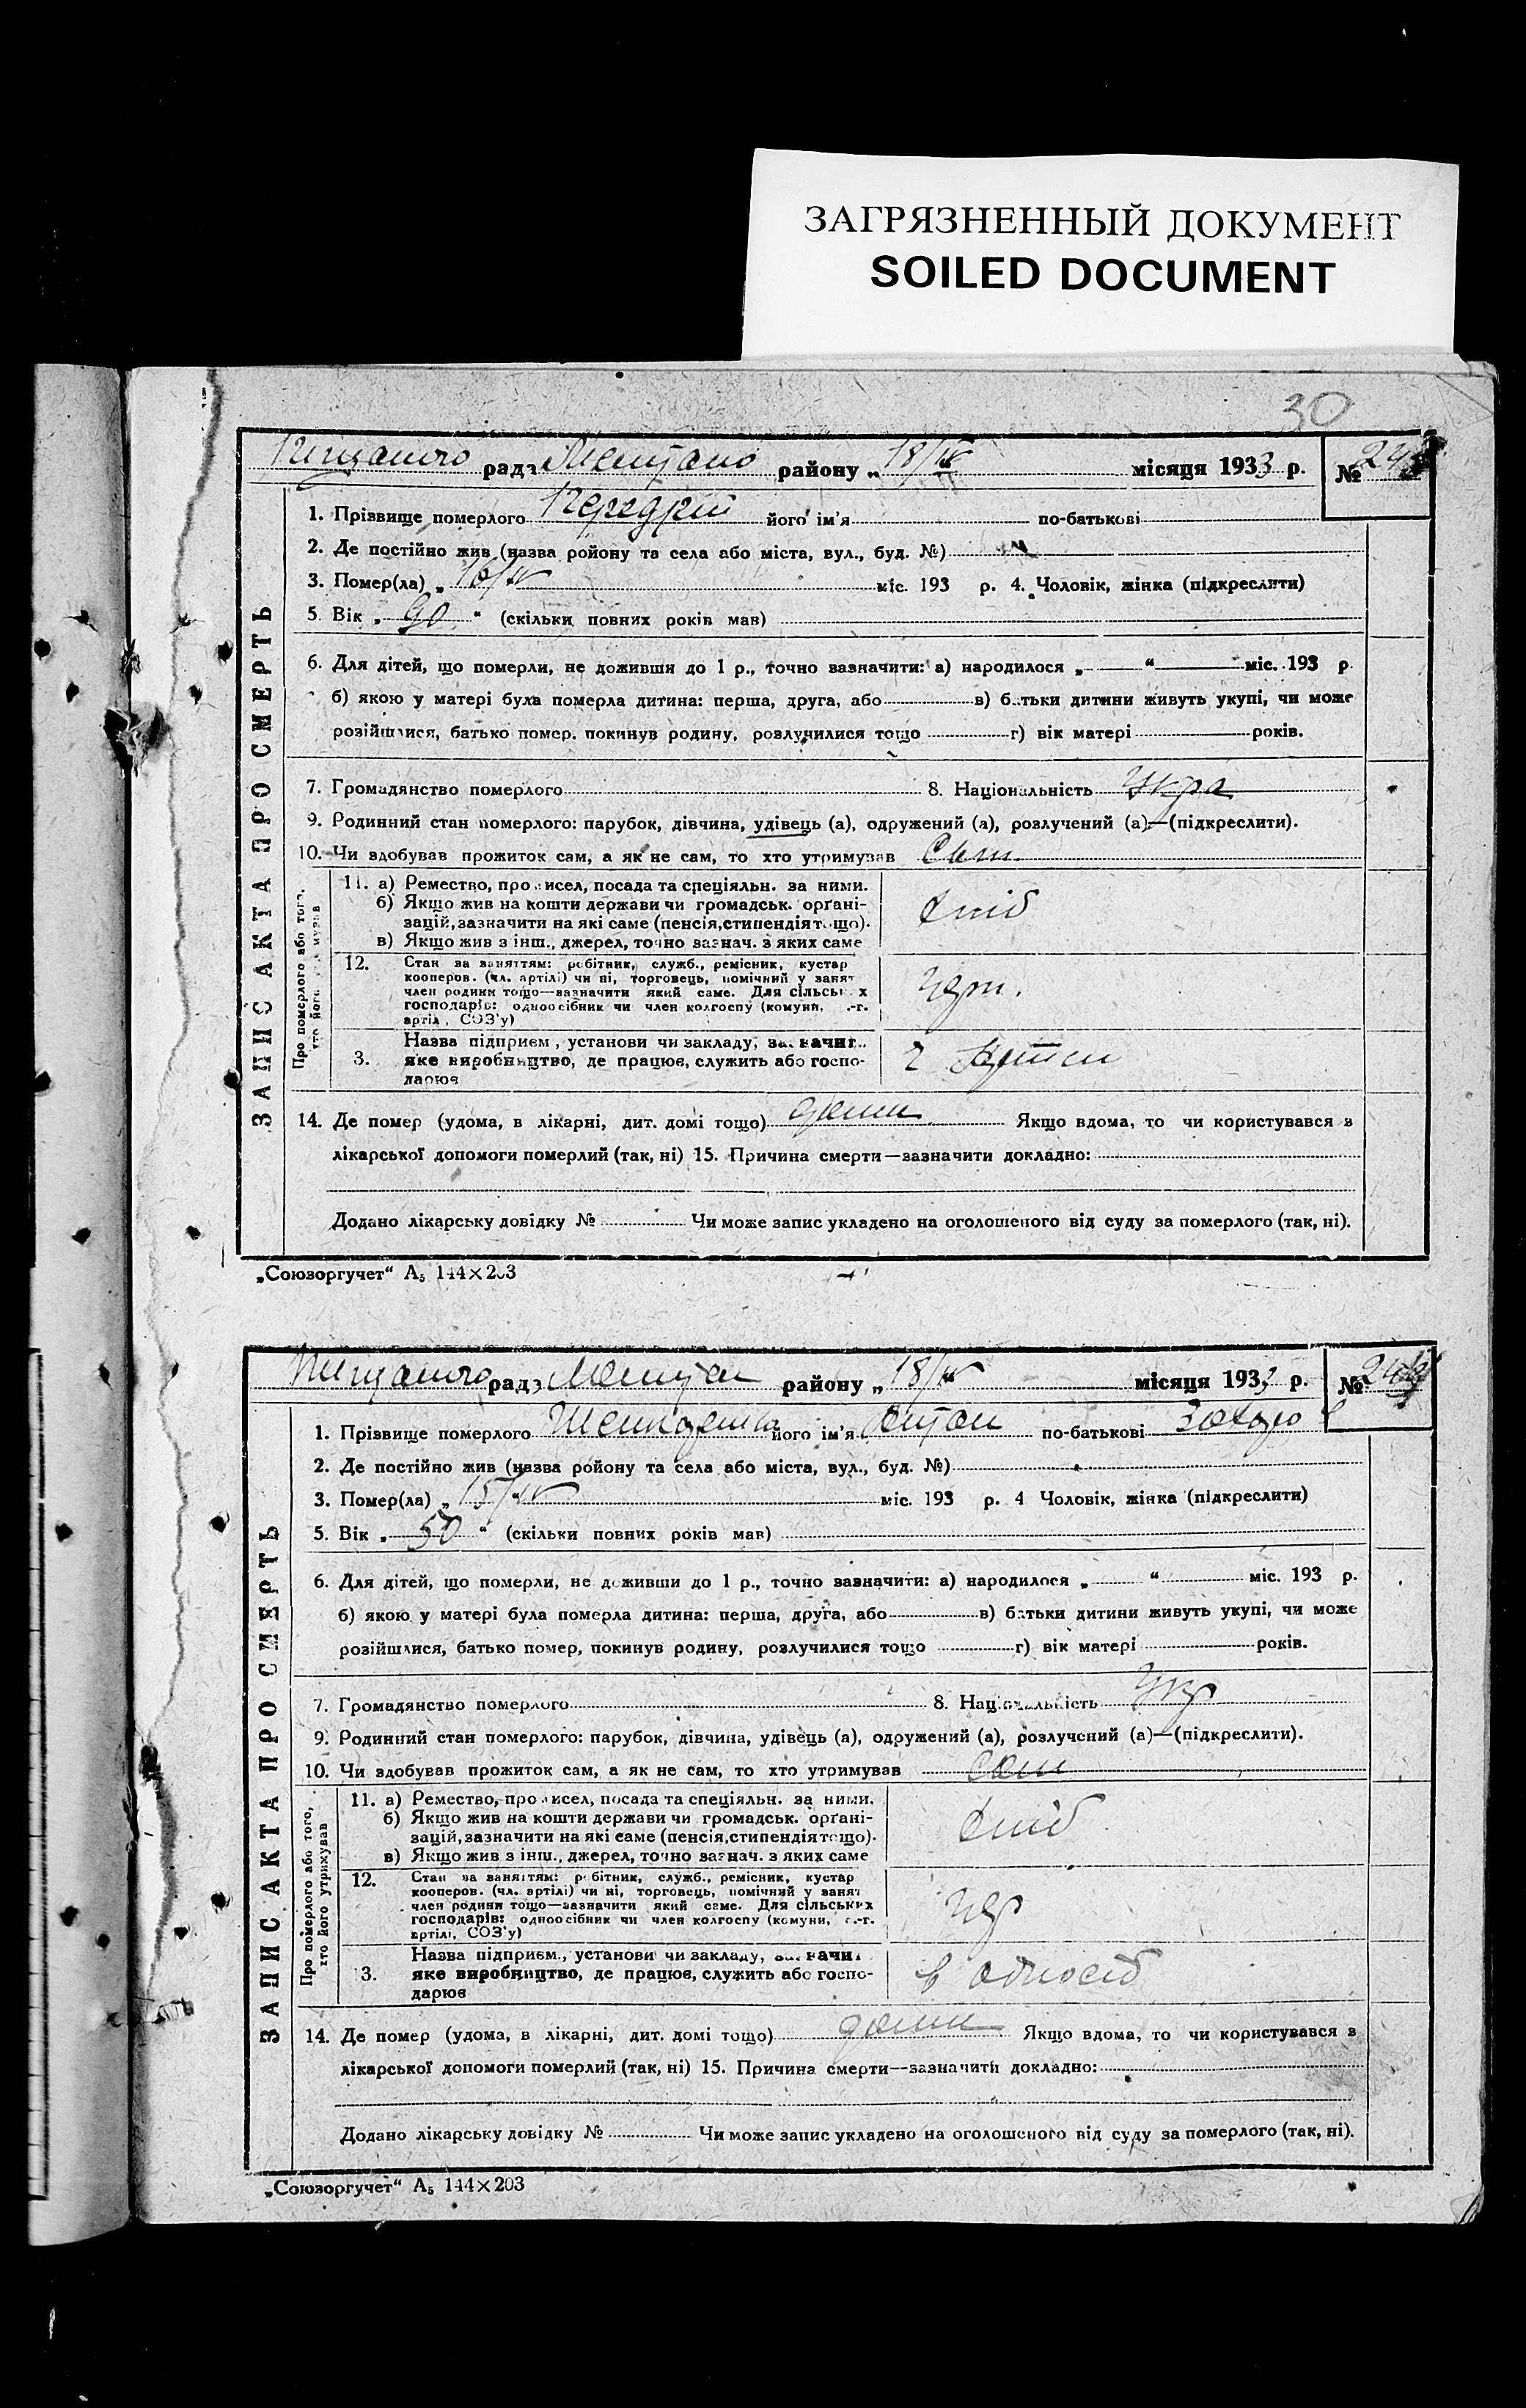 ЗАГРЯЗНЕННЫЙ ДОКУМЕНТ
SOILED DOCUMENT
30
рада району „18/IV“ місяця 1933 р. №
ЗАПИС АКТА ПРО СМЕРТЬ
1. Прізвище померлого його ім'я по-батькові
2. Де постійно жив (назва ройону та села або міста, вул., буд. №)
3. Помер(ла) „16/IV міс. 193 р. 4. Чоловік, жінка (підкреслити)
5. Вік „90“ (скільки повних років мав)
6. Для дітей, що померли, не доживши до 1 р., точно зазначити: а) народилося „ “ міс. 193 р.
б) якою у матері була померла дитина: перша, друга, або в) батьки дитини живуть укупі, чи може
розійшлися, батько помер, покинув родину, розлучилися тощо г) вік матері років.
7. Громадянство померлого 8. Національність Укра
9. Родинний стан померлого: парубок, дівчина, удівець (а), одружений (а), розлучений (а)—(підкреслити).
10. Чи здобував прожиток сам, а як не сам, то хто утримував Сам
Про померлого або того,
хто його утримував
11. а) Ремество, промисел, посада та спеціяльн. за ними.
б) Якщо жив на кошти держави чи громадськ. орґані-
зацій, зазначити на які саме (пенсія, стипендія тощо).
в) Якщо жив з інш., джерел, точно зазнач. з яких саме
хліб
12. Стан за заняттям: робітник, служб., ремісник, кустар
кооперов. (чл. артілі) чи ні, торговець, помічний у занят
член родини тощо—зазначити який саме. Для сільських
господарів: одноосібник чи член колгоспу (комуни, с.-г.
артіл, СОЗ'у)
Назва підприєм., установи чи закладу, зазначит.
3. яке виробництво, де працює, служить або госпо-
дарює
14. Де помер (удома, в лікарні, дит. домі тощо) дома Якщо вдома, то чи користувався з
лікарської допомоги померлий (так, ні) 15. Причина смерти—зазначити докладно:
Додано лікарську довідку № Чи може запис укладено на оголошеного від суду за померлого (так, ні).
„Союзоргучет“ А₅ 144×203
рада району „18/IV“ місяця 1933 р. №
ЗАПИС АКТА ПРО СМЕРТЬ
1. Прізвище померлого його ім'я Антон по-батькові
2. Де постійно жив (назва ройону та села або міста, вул., буд. №)
3. Помер(ла) „15/IV міс. 193 р. 4 Чоловік, жінка (підкреслити)
5. Вік „50“ (скільки повних років мав)
6. Для дітей, що померли, не доживши до 1 р., точно зазначити: а) народилося „ “ міс. 193 р.
б) якою у матері була померла дитина: перша, друга, або в) батьки дитини живуть укупі, чи може
розійшлися, батько помер, покинув родину, розлучилися тощо г) вік матері років.
7. Громадянство померлого 8. Національність Укр
9. Родинний стан померлого: парубок, дівчина, удівець (а), одружений (а), розлучений (а)—(підкреслити).
10. Чи здобував прожиток сам, а як не сам, то хто утримував Сам
Про померлого або того,
хто його утримував
11. а) Ремество, промисел, посада та спеціяльн. за ними.
б) Якщо жив на кошти держави чи громадськ. орґані-
зацій, зазначити на які саме (пенсія, стипендія тощо).
в) Якщо жив з інш., джерел, точно зазнач. з яких саме
хліб
12. Стан за заняттям: робітник, служб., ремісник, кустар
кооперов. (чл. артілі) чи ні, торговець, помічний у занят
член родини тощо—зазначити який саме. Для сільських
господарів: одноосібник чи член колгоспу (комуни, с.-г.
артілі, СОЗ'у)
Назва підприєм., установи чи закладу, зазначи
3. яке виробництво, де працює, служить або госпо-
дарює
в односіб
14. Де помер (удома, в лікарні, дит. домі тощо) дома Якщо вдома, то чи користувався з
лікарської допомоги померлий (так, ні) 15. Причина смерти—зазначити докладно:
Додано лікарську довідку № Чи може запис укладено на оголошеного від суду за померлого (так, ні).
„Союзоргучет“ А₅ 144×203